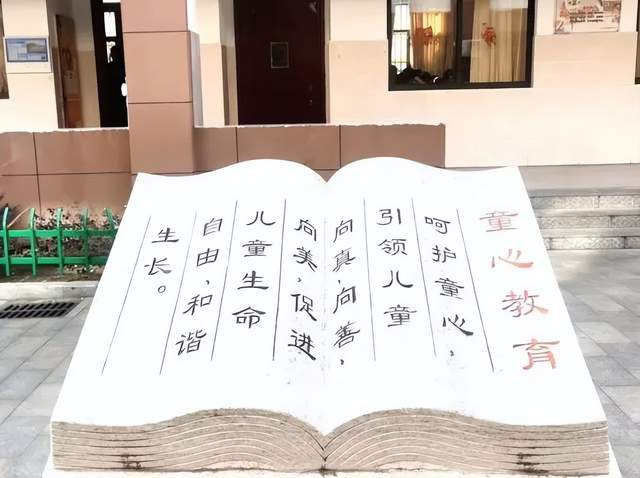 童心教育
呵护童心，
引领儿童
向真，向善，
向美，促进
儿童生命
自由、和谐
生长。